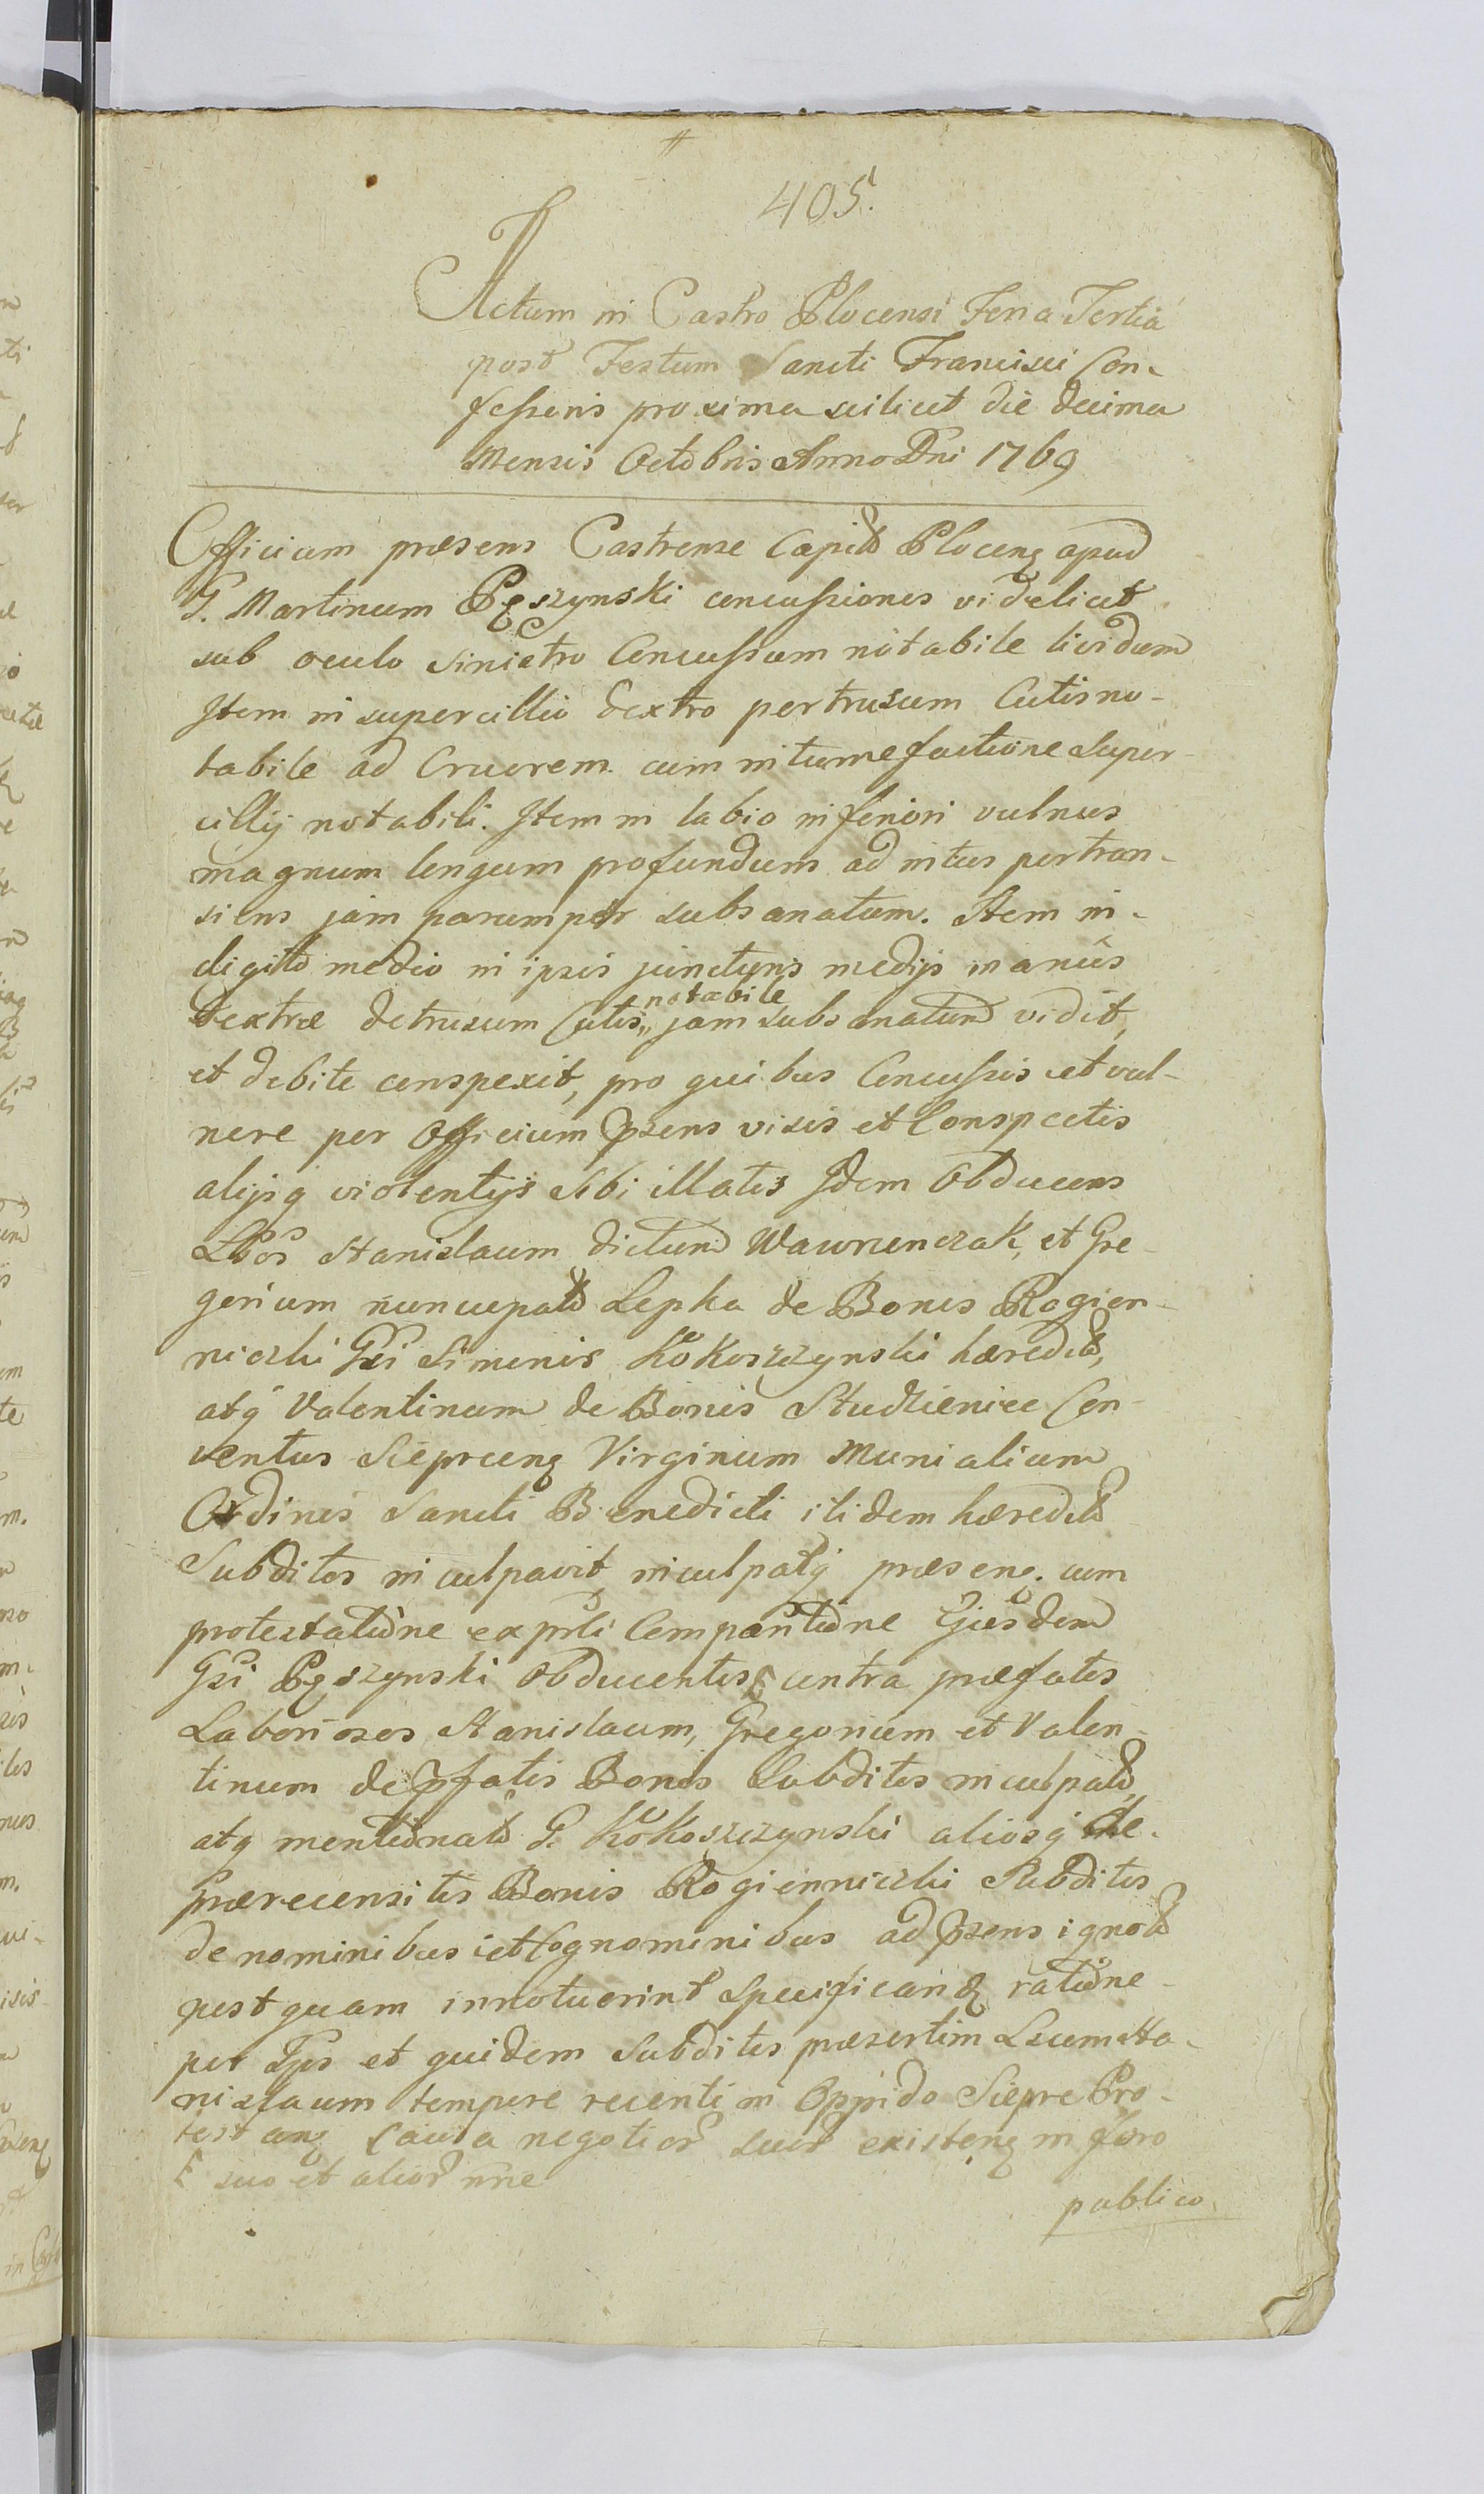 405.
Actum in Castro Plocensi Feria Tertia
post Festum Sancti Francisci Con-
feſsoris proxima scilicet die decima
Mensis Octobris Anno Dni 1769
Officium præsens Castrense Capitt Plocenꝫ apud
G. Martinum Pęszynski concuſsiones videlicet
sub oculo sinistro Concuſsum notabile lividum
Item in supercillio dextro pertrusum Cutis no-
tabile ad Cruorem cum intumefactione super-
cillij notabili. Item in labio inferiori vulnus
magnum longum profundum ad intus pertran-
siens jam parumper subsanatum. Item in-
digito medio in ipsis juncturis medijs manus
dextræ detrusum Cutis,, notabile jam subsanatum vidit,
et debite conspexit, pro quibus Concuſsis et vul-
nere per Officium ꝑsens visis et Conspectis
alijsq violentijs sibi illatis Idem Obducens
Lbos Stanislaum dictum Wawrzenczak, et Gre-
gorium nuncupatt Lepka de Bonis Rogien-
niczki Gsi Simonis Kokoszczynski hæreditt,
atq Valentinum de Bonis Studzieniec Con-
ventus Sieprcenꝫ Virginum Monialium
Ordinis Sancti Benedicti itidem hæreditt
Subditos inculpavit, inculpatq præsenꝫ. cum
protestatione expsti Comparitione Ejusdem
Gsi Pęszynski Obducentis contra præfatos
Laboriosos Stanislaum, Gregorium et Valen-
tinum de ꝑfatis Bonis Subditos inculpatt,
atq mentionatt G. Kokoszczynski aliosq de-
prærecensitis Bonis Rogienniczki Subditos
de nominibus et Cognominibus ad ꝑsens ignott
postquam innotuerint specificanꝫ ratione
per Ips et quidem Subditos præsertim Lrum Sta-
nislaum tempore recenti in Oppido Siepre Pro-
testanꝫ Causa negotior suor existenꝫ in foro
suo et alior nne
publico